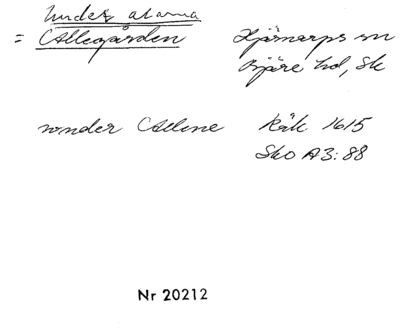 Under alarna
= Allegården Hjärnarps sn
Bjäre hd, Sk
wnder Allene Räk. 1615
Sko A3:88
Nr 20212